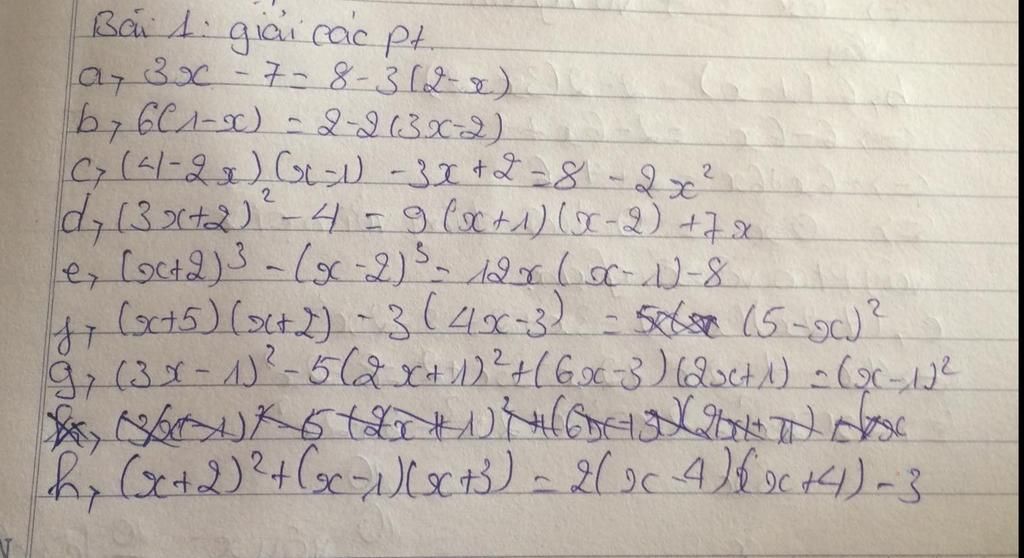 Bài 1: giải các pt.
a, 3x - 7 = 8 - 3(2-x)
b, 6(1-x) = 2-2(3x-2)
c, (4-2x)(x-1) - 3x + 2 = 8 - 2x²
d, (3x+2)² - 4 = 9(x+1)(x-2) + 7x
e, (x+2)³ - (x-2)³ = 12x(x-1) - 8
f, (x+5)(x+2) - 3(4x-3) = (5-x)²
g, (3x-1)² - 5(2x+1)² + (6x-3)(2x+1) = (x-1)²
h, (x+2)² + (x-1)(x+3) = 2(x-4)(x+4) - 3